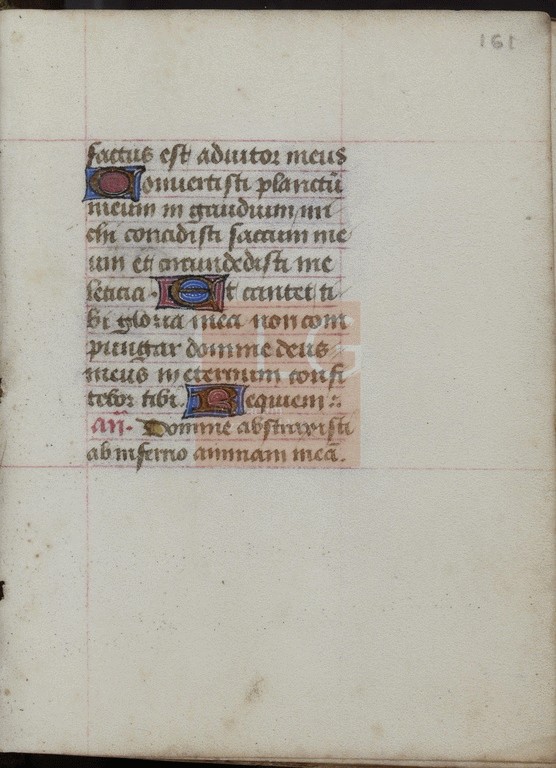 161
factus est adiutor meus
Conuertisti planctū
meum in gaudium mi
chi concidisti saccum me
um et circundedisti me
leticia. Et cantet ti
bi gloria mea non com
pungar domine deus
meus in eternum confi
tebor tibi. Requiem:
añ. Domine abstraxisti
ab inferno animam meā.